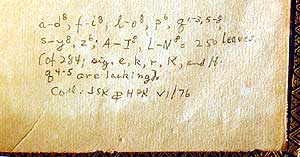 a-d⁸, f-i⁸, l-o⁸, p⁶, q¹⁻³,⁵⁻⁸,
s-y⁸, z⁶; A-I⁸, L-N⁸ = 250 leaves.
(of 284; sig. e, k, r, K, and H.
q4-5 are lacking).
Coll: JSK & HPK VI/76